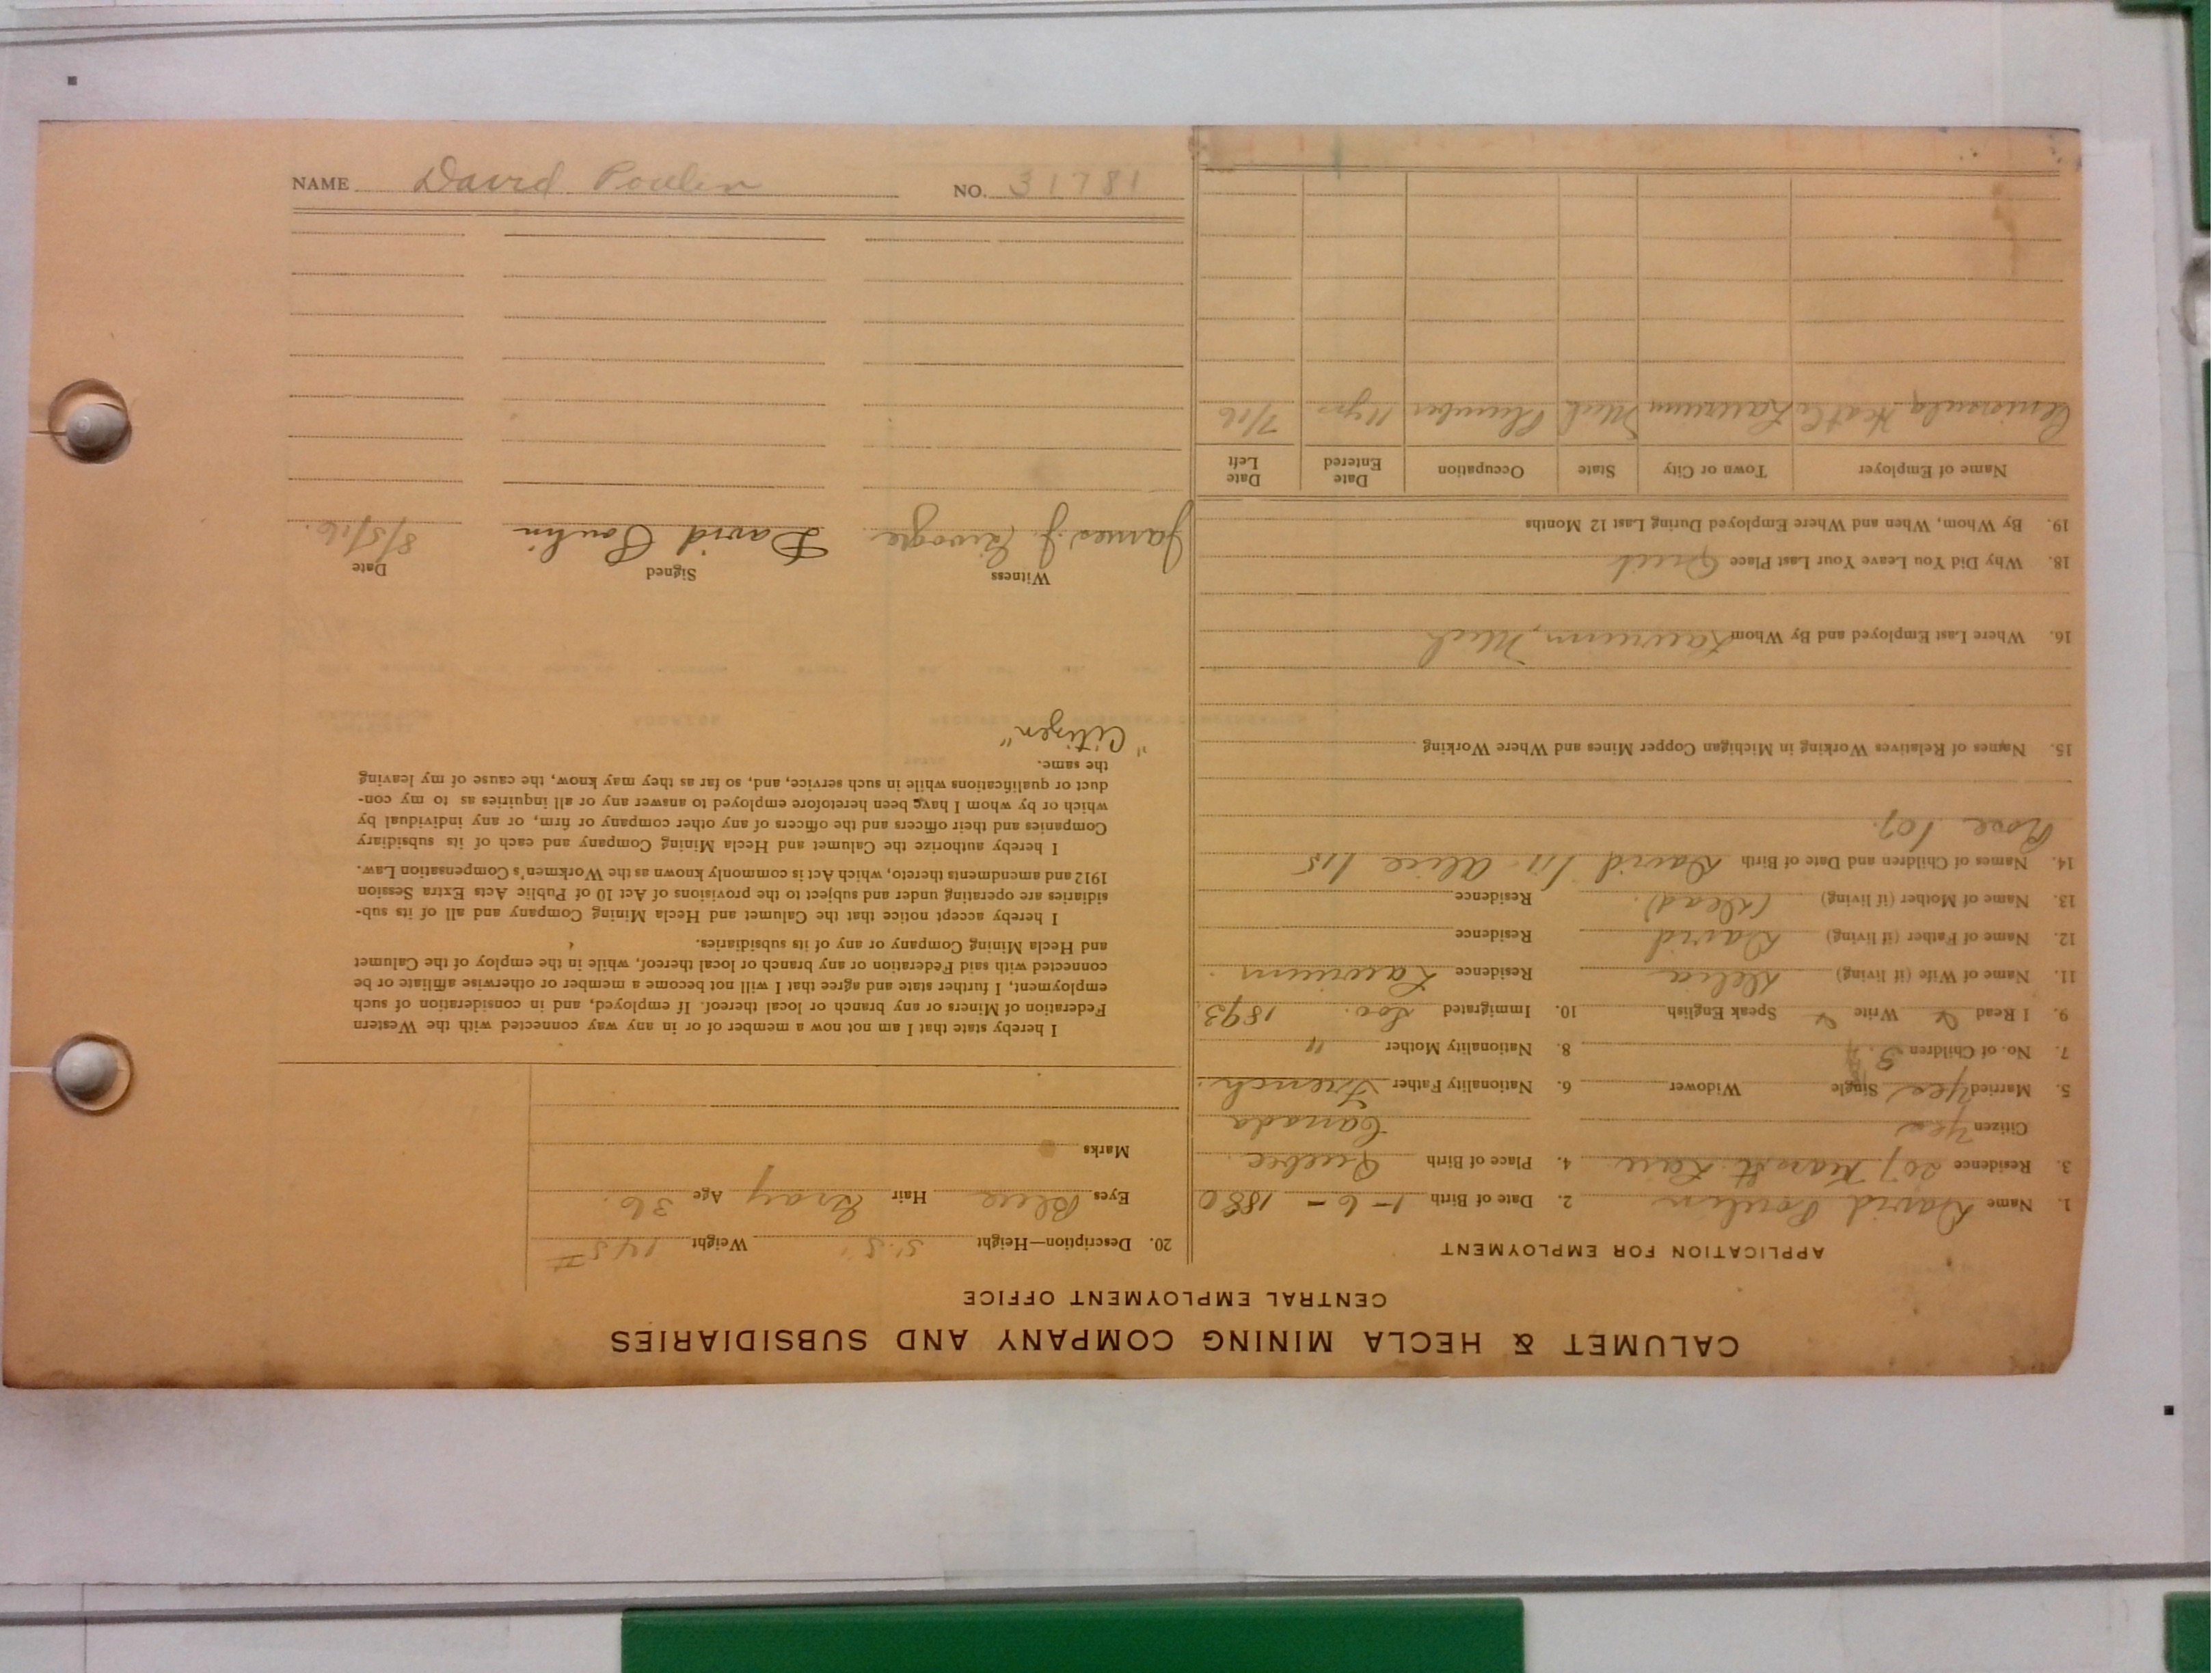 NAME David Poulin NO. 31781
CALUMET & HECLA MINING COMPANY AND SUBSIDIARIES
CENTRAL EMPLOYMENT OFFICE
APPLICATION FOR EMPLOYMENT
1. Name David Poulin 2. Date of Birth 1-6-1880
3. Residence 207 Kearst. Laur 4. Place of Birth Quebec
Citizen Yes Canada
5. Married Yes Single Widower 6. Nationality Father French.
7. No. of Children 3. 8. Nationality Mother "
9. I Read Write Speak English 10. Immigrated Soo. 1893
11. Name of Wife (if living) Delia Residence Laurium.
12. Name of Father (if living) David Residence
13. Name of Mother (if living) (dead). Residence
14. Names of Children and Date of Birth David 1/11- Alice 1/15
Rose 1/07.
15. Names of Relatives Working in Michigan Copper Mines and Where Working
16. Where Last Employed and By Whom Laurium, Mich
18. Why Did You Leave Your Last Place Quit
19. By Whom, When and Where Employed During Last 12 Months
Name of Employer Town or City State Occupation Date Entered Date Left
Peninsula Heat Co Laurium Mich Plumber 11 yrs 7/16
20. Description—Height 5'.5" Weight 145#
Eyes Blue Hair Gray Age 36.
Marks
I hereby state that I am not now a member of or in any way connected with the Western
Federation of Miners or any branch or local thereof. If employed, and in consideration of such
employment, I further state and agree that I will not become a member or otherwise affiliate or be
connected with said Federation or any branch or local thereof, while in the employ of the Calumet
and Hecla Mining Company or any of its subsidiaries.
I hereby accept notice that the Calumet and Hecla Mining Company and all of its sub-
sidiaries are operating under and subject to the provisions of Act 10 of Public Acts Extra Session
1912 and amendments thereto, which Act is commonly known as the Workmen's Compensation Law.
I hereby authorize the Calumet and Hecla Mining Company and each of its subsidiary
Companies and their officers and the officers of any other company or firm, or any individual by
which or by whom I have been heretofore employed to answer any or all inquiries as to my con-
duct or qualifications while in such service, and, so far as they may know, the cause of my leaving
the same.
"Citizen"
Witness Signed Date
James J. David Poulin 8/5/16.